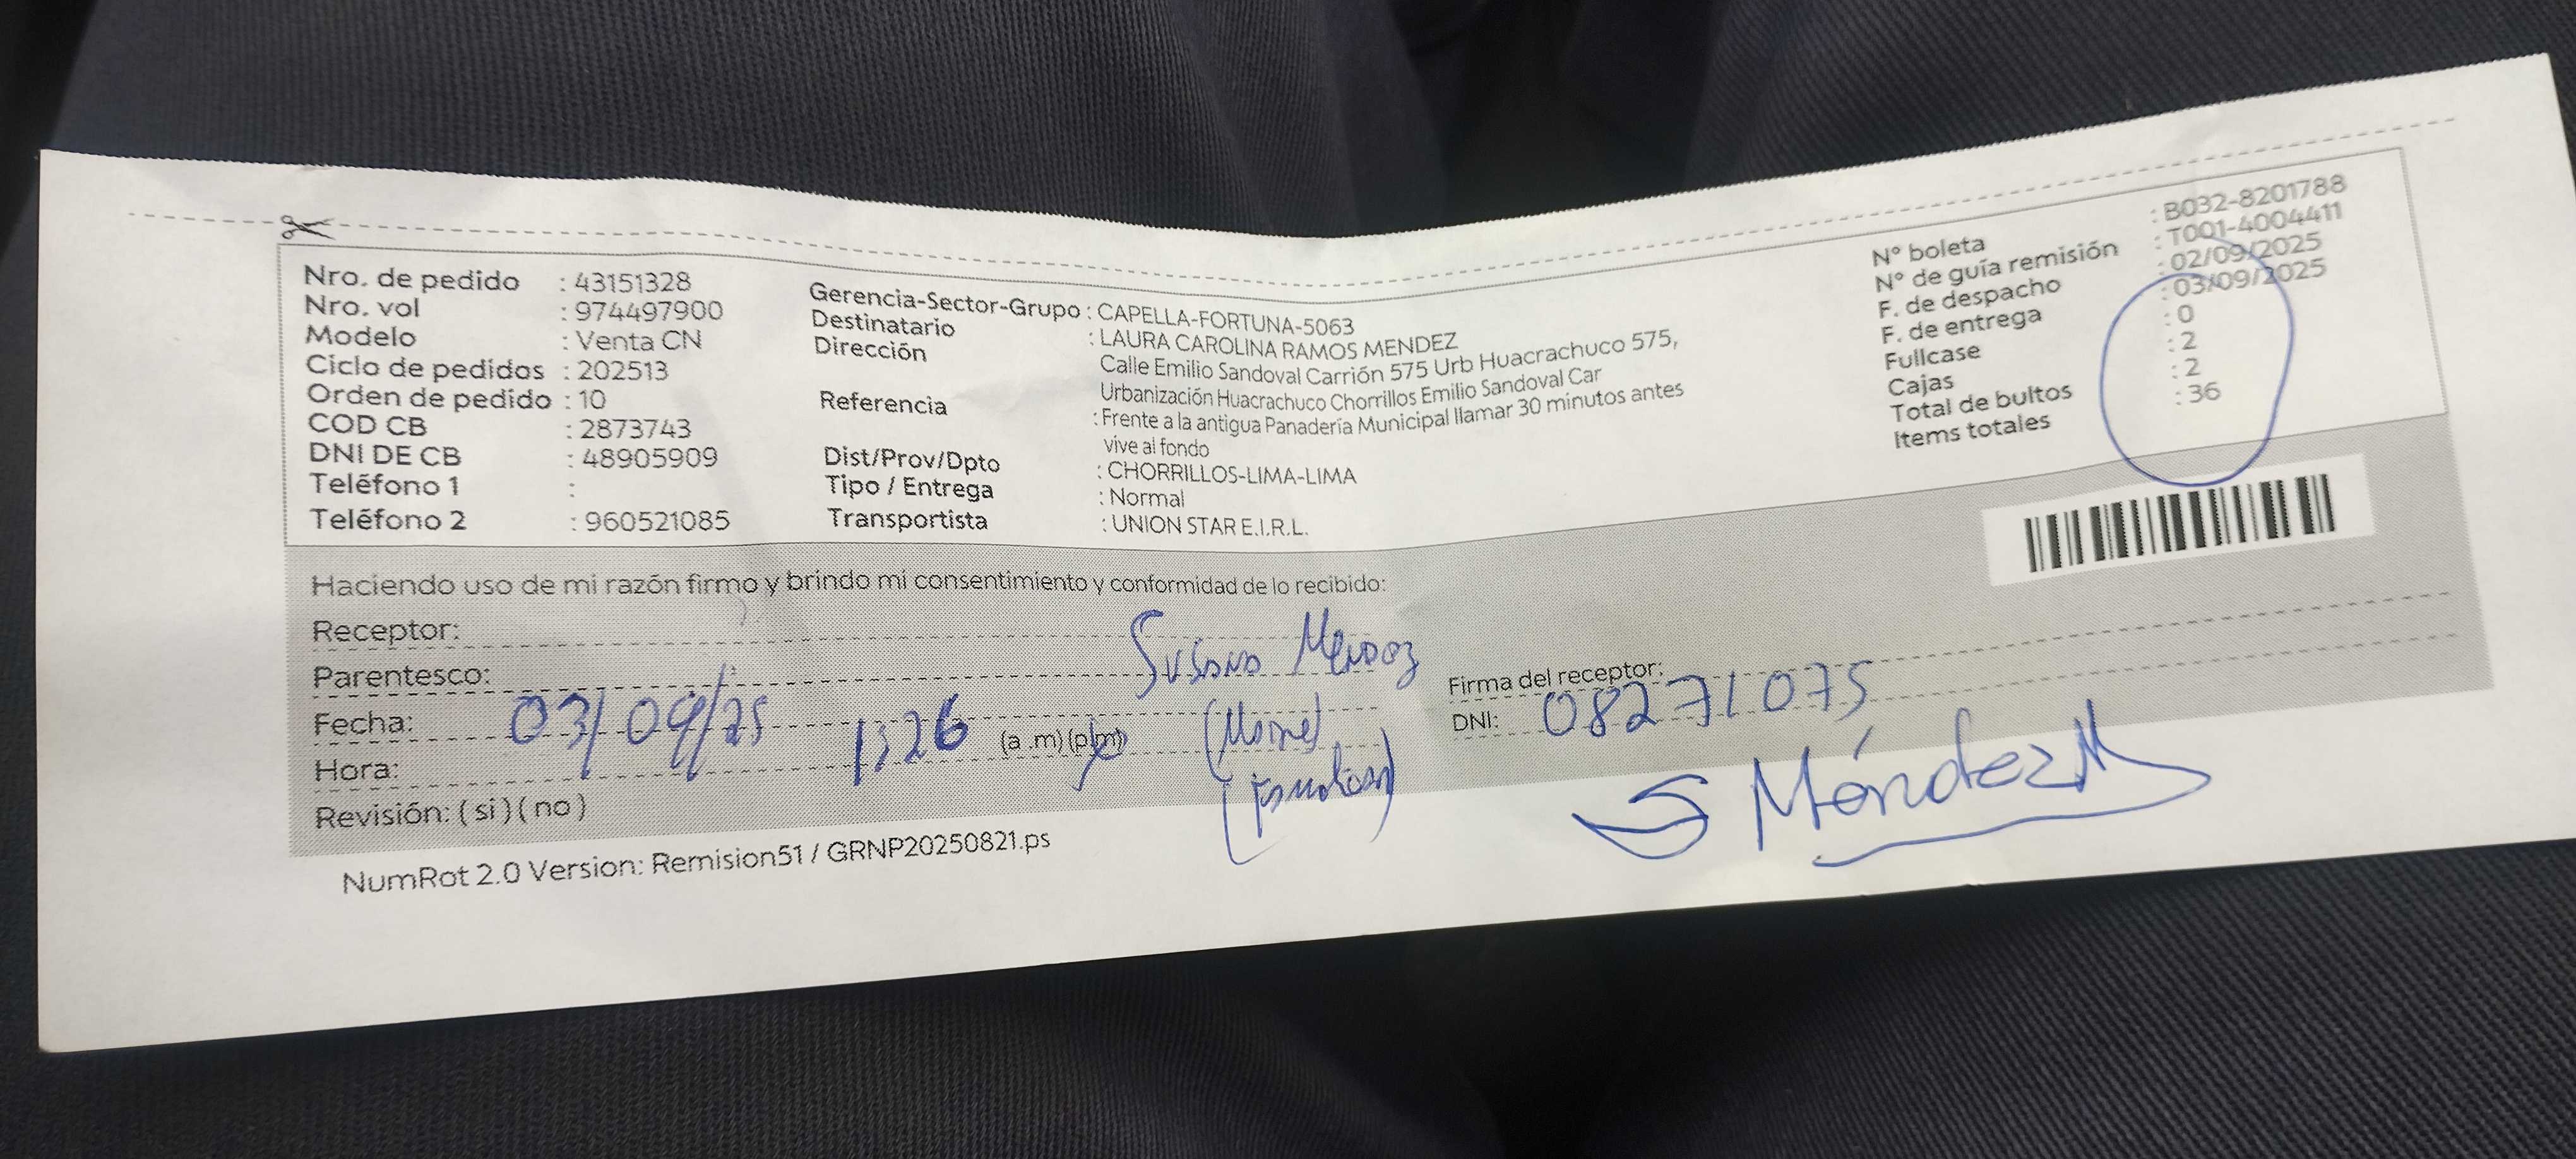 Nro. de pedido : 43151328
Nro. vol : 974497900
Modelo : Venta CN
Ciclo de pedidos : 202513
Orden de pedido : 10
COD CB : 2873743
DNI DE CB : 48905909
Teléfono 1 :
Teléfono 2 : 960521085
Gerencia-Sector-Grupo : CAPELLA-FORTUNA-5063
Destinatario : LAURA CAROLINA RAMOS MENDEZ
Dirección : Calle Emilio Sandoval Carrión 575 Urb Huacrachuco 575,
Urbanización Huacrachuco Chorrillos Emilio Sandoval Car
Referencia : Frente a la antigua Panadería Municipal llamar 30 minutos antes
vive al fondo
Dist/Prov/Dpto : CHORRILLOS-LIMA-LIMA
Tipo / Entrega : Normal
Transportista : UNION STAR E.I.R.L.
N° boleta : B032-8201788
N° de guía remisión : T001-4004411
F. de despacho : 02/09/2025
F. de entrega : 03/09/2025
Fullcase : 0
Cajas : 2
Total de bultos : 2
Items totales : 36
Haciendo uso de mi razón firmo y brindo mi consentimiento y conformidad de lo recibido:
Receptor:
Parentesco:
Fecha: 03/09/25
Hora: 1:26 (a .m)(p.m)
Revisión: ( si ) ( no )
Firma del receptor:
DNI: 08271075
S Méndez M
NumRot 2.0 Version: Remision51 / GRNP20250821.ps